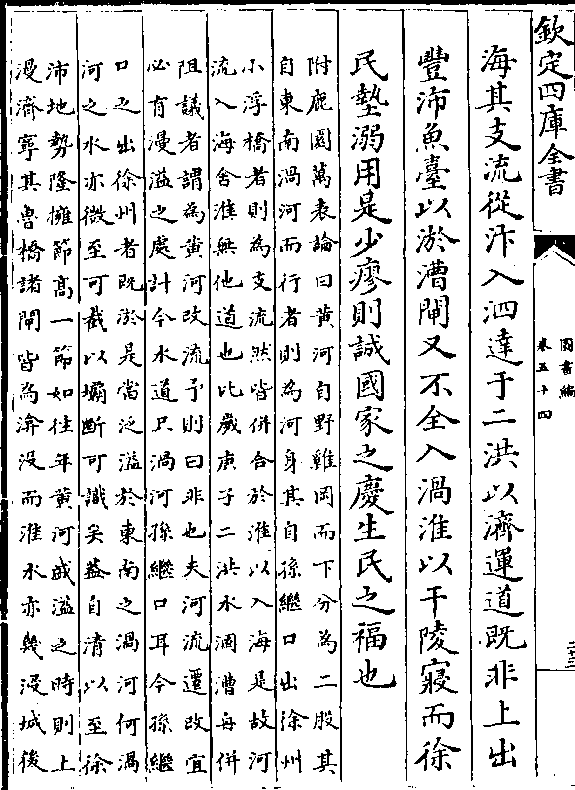 欽定四庫全書
圖書編
卷五十四
海其支流從汴入泗達于二洪以濟運道既非上出
豐沛魚臺以淤漕閘又不全入渦淮以干陵寢而徐
民墊溺用是少瘳則誠國家之慶生民之福也
附鹿園萬表論曰黄河自野雞岡而下分為二股其
自東南渦河而行者則為河身其自孫繼口出徐州
小浮橋者則為支流然皆併合於淮以入海是故河
流入海舍淮無他道也比嵗庚子二洪水涸漕每併
阻議者謂為黄河改流予則曰非也夫河流遷改宜
必有漫溢之處計今水道只渦河孫繼口耳今孫繼
口之出徐州者既淤是當泛溢於東南之渦河何渦
河之水亦微至可截以壩斷可識矣葢自清以至徐
沛地勢隆擁節髙一節如往年黄河或溢之時則上
漫濟寧其魯橋諸閘皆為渰没而淮水亦幾浸城後